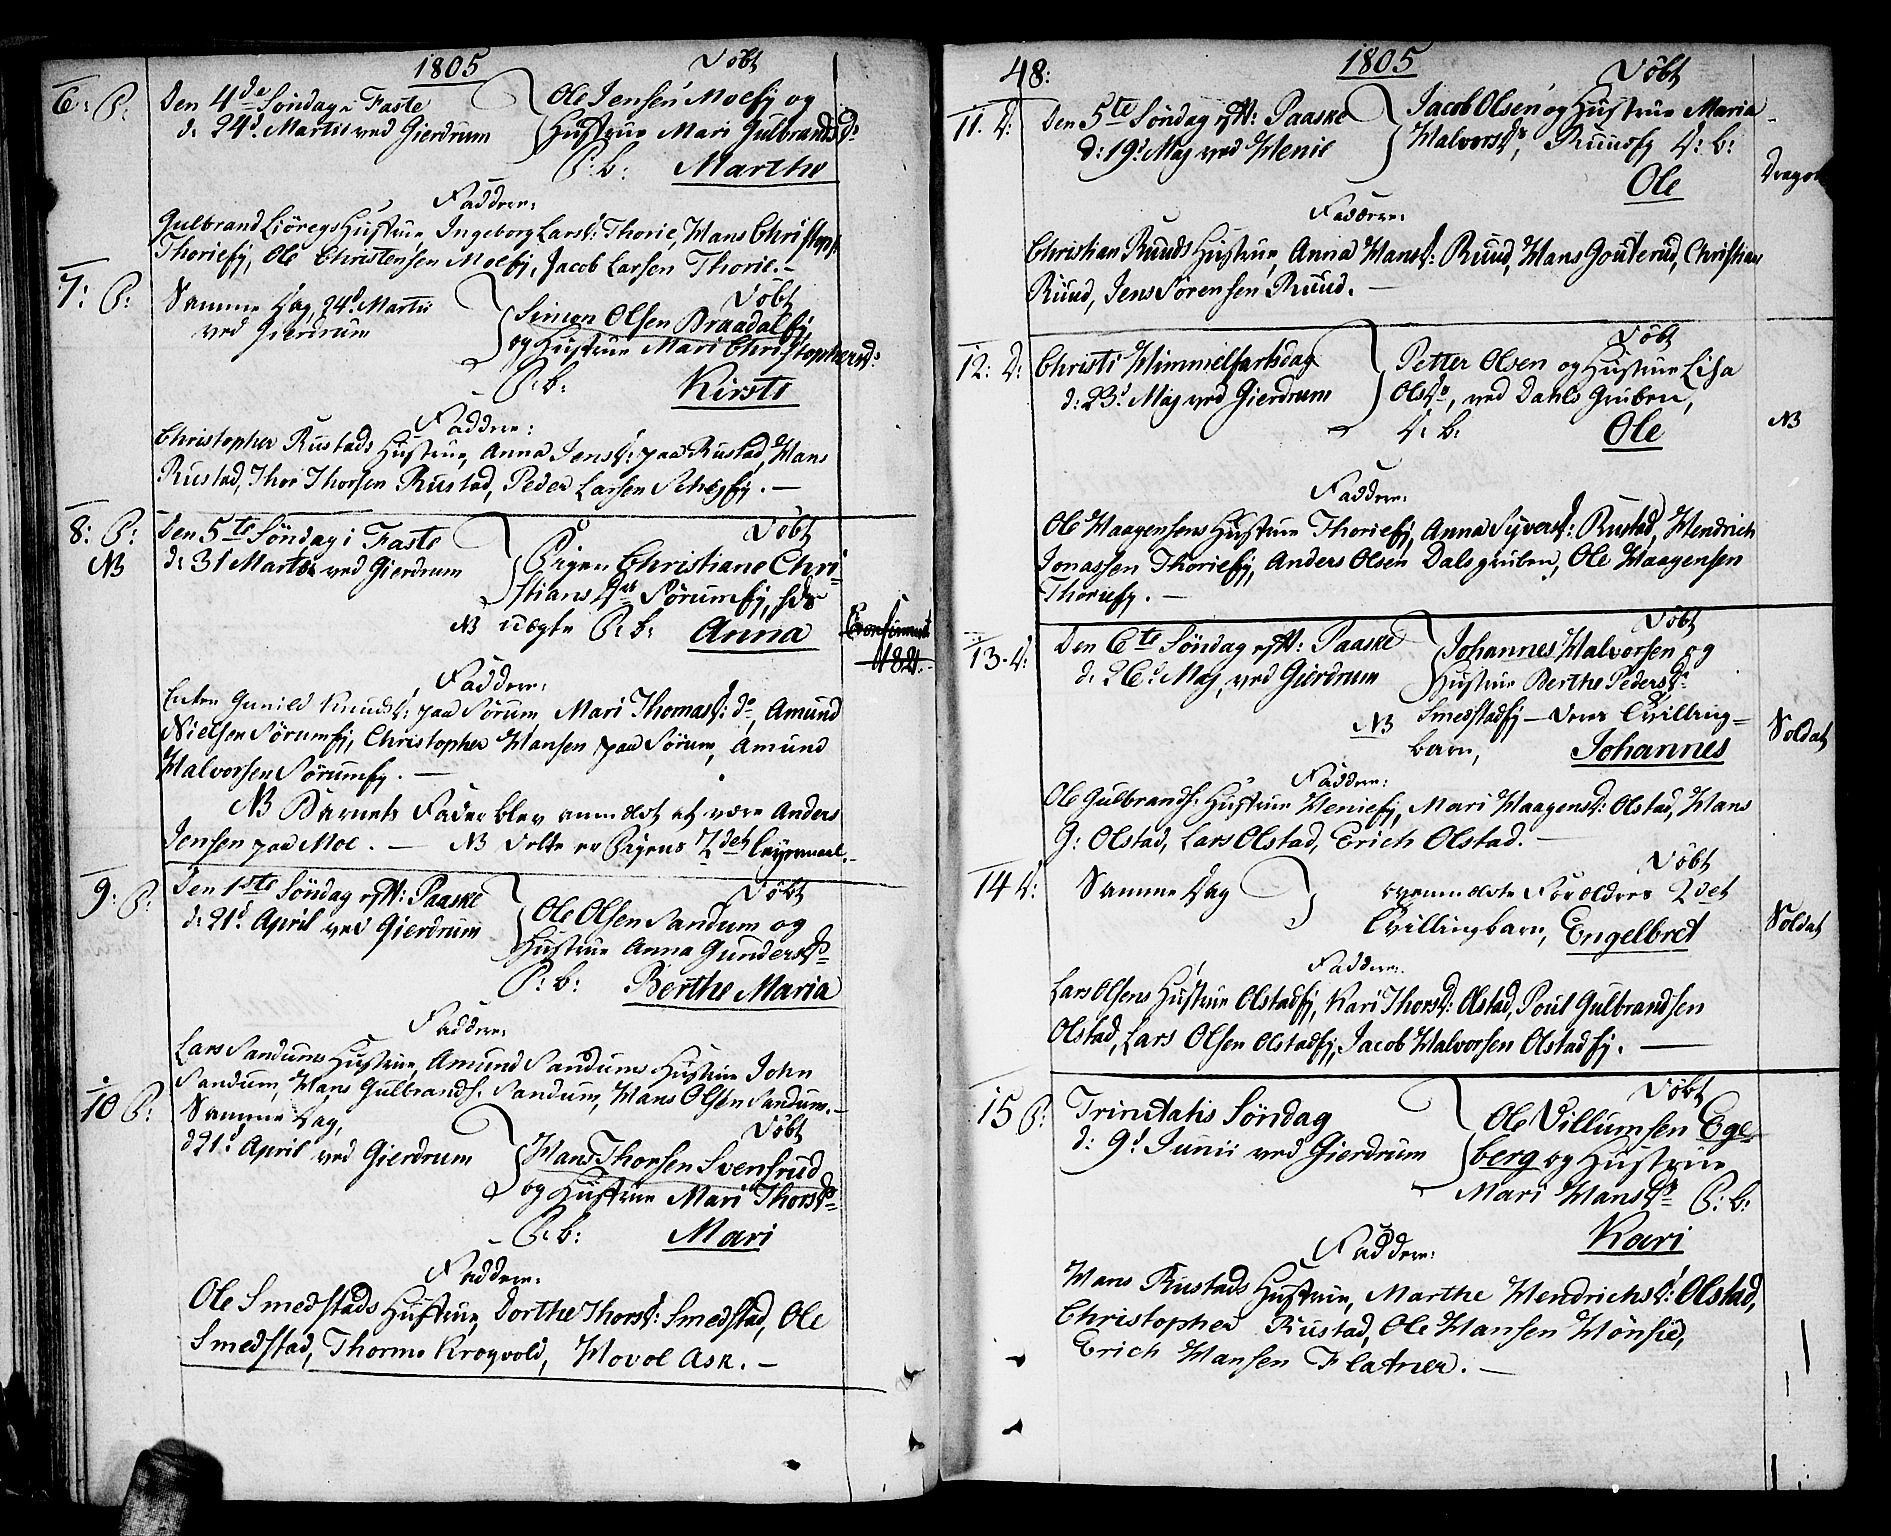 1805
Døbt
6: P:
Den 4de Søndag i Faste
d: 24d Martii ved Gierdrum
Ole Jensen Moeej og
Hustrue Mari Gulbrandsd:
P: b: Marthe
Faddere:
Gulbrand Hustrue Ingeborg Larsd: Thorie, Hans Christoph:
Thorieej, Ole Christensen Moeej, Jacob Larsen Thorie.-
7: P:
Samme Dag, 24d Martii
ved Gierdrum
Døbt
Simen Olsen Braadalej,
og Hustrue Mari Christophersd:
P: b: Kirsti
Faddere:
Christopher Rustads Hustrue, Anna Jensd: paa Rustad, Hans
Rustad, Thor Thorsen Rustad, Peder Larsen .-
8: P:
NB
Den 5te Søndag i Faste
d: 31 Martii ved Gierdrum
Døbt
Pigen Christiane Chri-
stiansdr Sørumej,
NB uægte P: b: Anna
Confirmert
Faddere:
Enken Gunild Knudsd: paa Sørum, Mari Thomasd: do, Amund
Nielsen Sørumej, Christopher Hansen paa Sørum, Amund
Halvorsen Sørumej.-
NB Barnets Fader blev anmeldet at være Anders
Jensen paa Moe.- NB dette er Pigens 2det Leyermaal.-
9: P:
Den 1ste Søndag efter: Paaske
d: 21d April ved Gierdrum
Døbt
Ole Olsen Sandum og
Hustrue Anna Gundersdr
P: b: Berthe Maria
Faddere:
Lars Sandums Hustrue, Amund Sandums Hustrue John
Sandum, Hans Gulbrands: Sandum, Hans Olsen Sandum.-
10 P:
Samme Dag,
d 21d April ved Gierdrum
Døbt
Hans Thorsen Svensrud
og Hustrue Mari Thorsdr
P: b: Mari
Faddere:
Ole Smedstads Hustrue, Dorthe Thorsd: Smedstad, Ole
Smedstad, Thorme Krogvold, Hovol Ask.-
48:
1805
Døbt
11. D:
Den 5te Søndag eft: Paaske
d: 19d Maj ved Henie
Jacob Olsen og Hustrue Maria
Halvorsdr, Ruudej D: b:
Ole
Faddere:
Christian Ruuds Hustrue, Anna Hansd: Ruud, Hans Gouterud, Christian
Ruud, Jens Sørensen Ruud.-
12: D:
Christi Himmelfartsdag
d: 23d Maj ved Gierdrum
Døbt
Petter Olsen og Hustrue Lisa
Olsdr, ved Dahls Gruben,
D: b: Ole
NB
Faddere:
Ole Haagensens Hustrue Thorieej, Anna Syversd: Rustad, Hendrich
Jonassen Thorieej, Anders Olsen Dalsgruben, Ole Haagensen
Thorieej.-
13. D:
Den 6te Søndag eft: Paaske
d: 26d Maj, ved Gierdrum
Døbt
Johannes Halvorsen og
Hustrue Berthe Pedersdr
NB Smedstadej - deres Tvilling-
barn, Johannes
Soldat
Faddere:
Ole Gulbrands: Hustrue Henieej, Mari Haagensd: Olstad, Hans
G: Olstad, Lars Olstad, Erich Olstad.-
14 D:
Samme Dag
Døbt
ovenmeldte Forældres 2det
Tvillingbarn, Engelbret
Soldat
Faddere:
Lars Olsens Hustrue Olstadej, Kari Thorsd: Olstad, Poul Gulbrandsen
Olstad, Lars Olsen Olstadej, Jacob Halvorsen Olstadej.-
15 P:
Trinitatis Søndag
d: 9d Junii ved Gierdrum
Døbt
Ole Villumsen Ege-
berg og Hustrue
Mari Hansdr P: b:
Kari
Faddere:
Hans Rustads Hustrue, Marthe Hendrichsd: Olstad,
Christopher Rustad, Ole Hansen Hønsie,
Erich Hansen Flatner.-